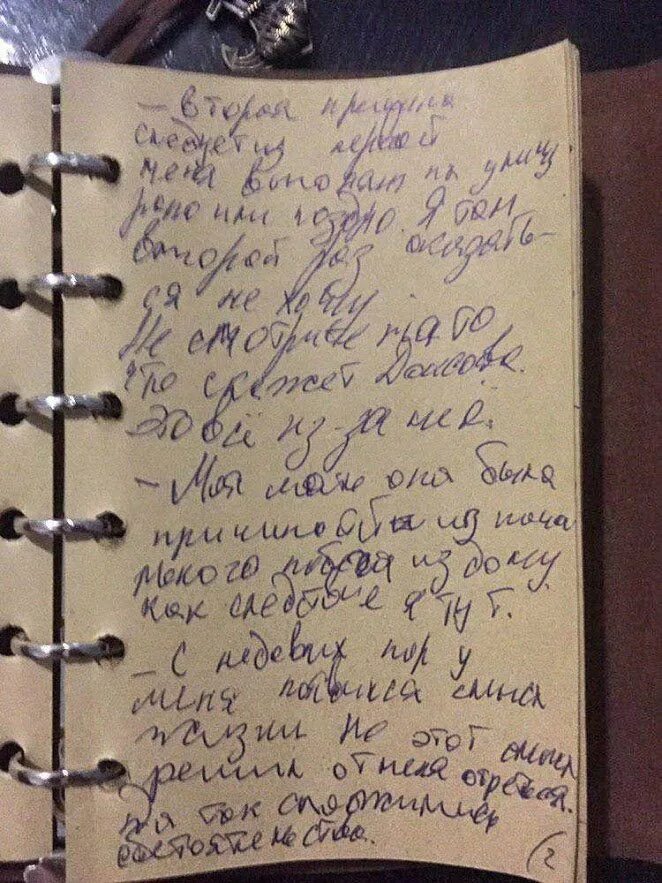 – Вторая причина
следует из первой
меня выгонят на улицу
рано или поздно. Я там
второй раз оказать-
ся не хочу.
Не смотрите на то
что скажет Денисова.
это всё из-за неё.
– Моя мать она была
причиной из
моего побега из дому
как следствие я тут.
– С недавних пор у
меня появился смысл
жизни но этот смысл
решил от меня отречься.
так сложились
обстоятельства.
(2